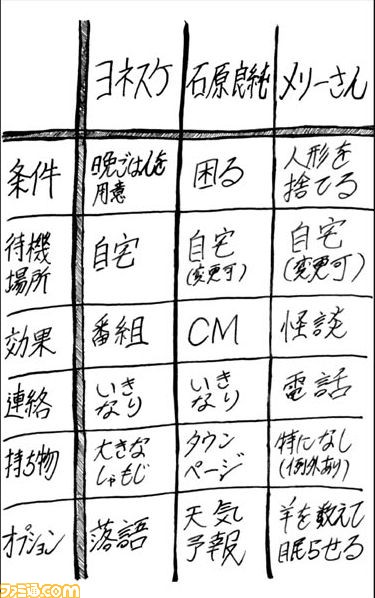 ヨネスケ 石原良純 メリーさん
条件 晩ごはんを用意 困る 人形を捨てる
待機場所 自宅 自宅(変更可) 自宅(変更可)
効果 番組 CM 怪談
連絡 いきなり いきなり 電話
持ち物 大きなしゃもじ タウンページ 特になし(例外あり)
オプション 落語 天気予報 羊を数えて眠らせる
ファミ通.com